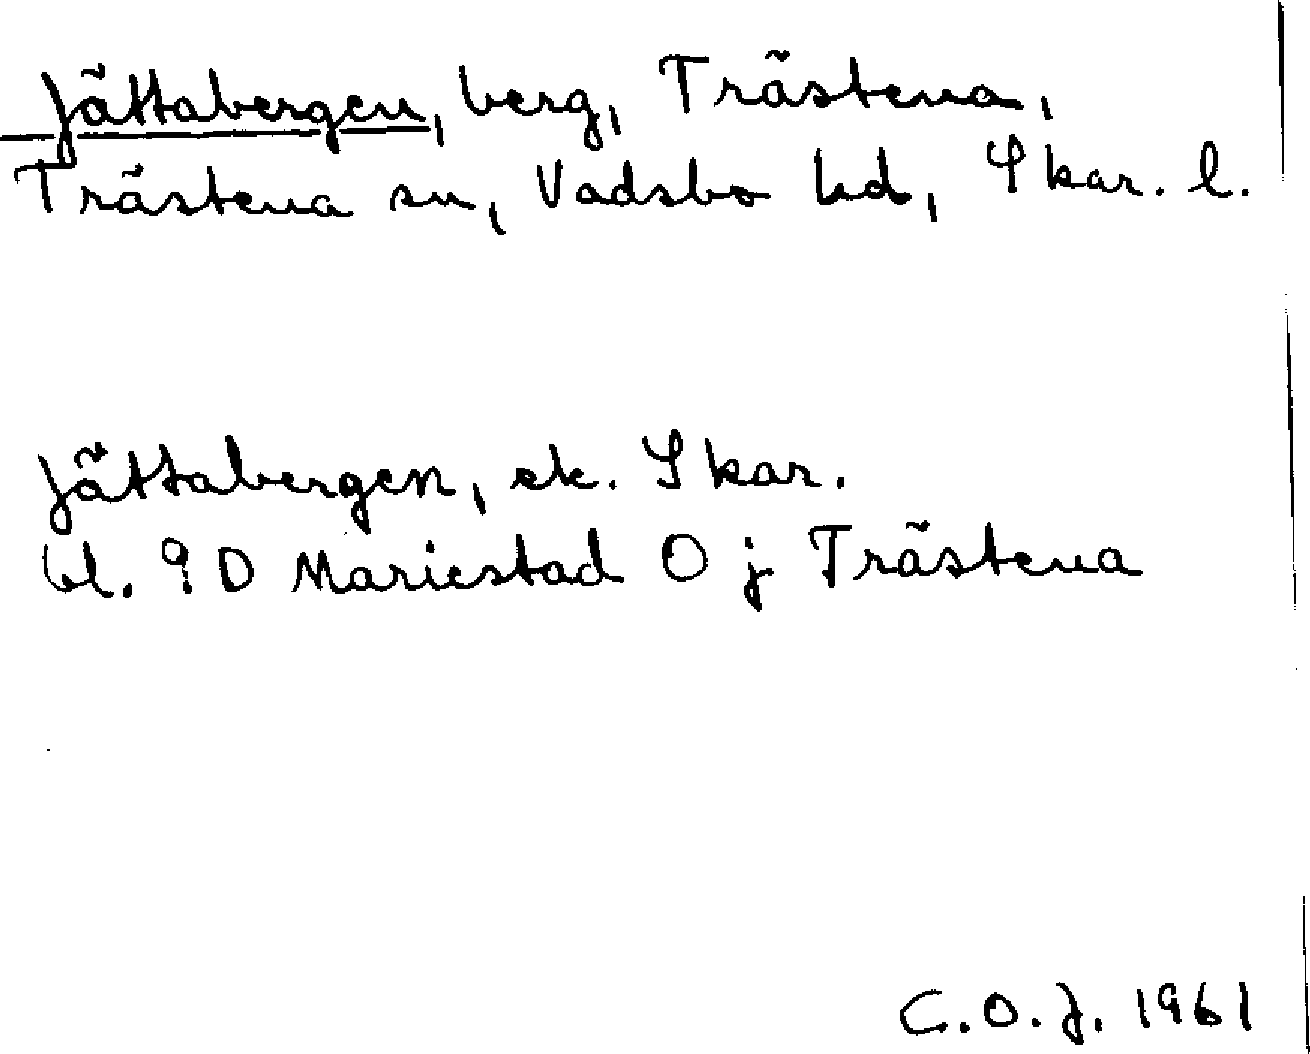 Jättabergen, berg, Trästena,
Trästena sn, Vadsbo hd, Skar. l.
Jättabergen, ek. Skar.
bl. 9D Mariestad O j Trästena
C.O.J. 1961